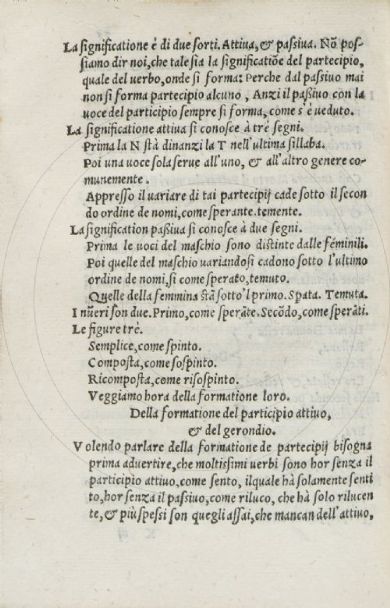 La significatione è di due sorti. Attiua, & passiua. Nõ pos-
siamo dir noi, che tale sia la significatiõe del partecipio,
quale del uerbo, onde si forma: Perche dal passiuo mai
non si forma partecipio alcuno, Anzi il passiuo con la
uoce del participio sempre si forma, come s'è ueduto.
La significatione attiua si conosce à trè segni.
Prima la N stà dinanzi la T nell'ultima sillaba.
Poi una uoce sola serue all'uno, & all'altro genere co-
munemente.
Appresso il uariare di tai partecipij cade sotto il secon
do ordine de nomi, come sperante. temente.
La signification passiua si conosce à due segni.
Prima le uoci del maschio sono distinte dalle féminili.
Poi quelle del maschio uariandosi cadono sotto l'ultimo
ordine de nomi, si come sperato, temuto.
Quelle della femmina stã sotto'l primo. Spata. Temuta.
I nũeri son due. Primo, come sperãte. Secõdo, come sperãti.
Le figure trè.
Semplice, come spinto.
Composta, come sospinto.
Ricomposta, come risospinto.
Veggiamo hora della formatione loro.
Della formatione del participio attiuo,
& del gerondio.
Volendo parlare della formatione de partecipij bisogna
prima aduertire, che moltissimi uerbi sono hor senza il
participio attiuo, come sento, ilquale hà solamente senti
to, hor senza il passiuo, come riluco, che hà solo rilucen
te, & più spessi son quegli assai, che mancan dell'attiuo,